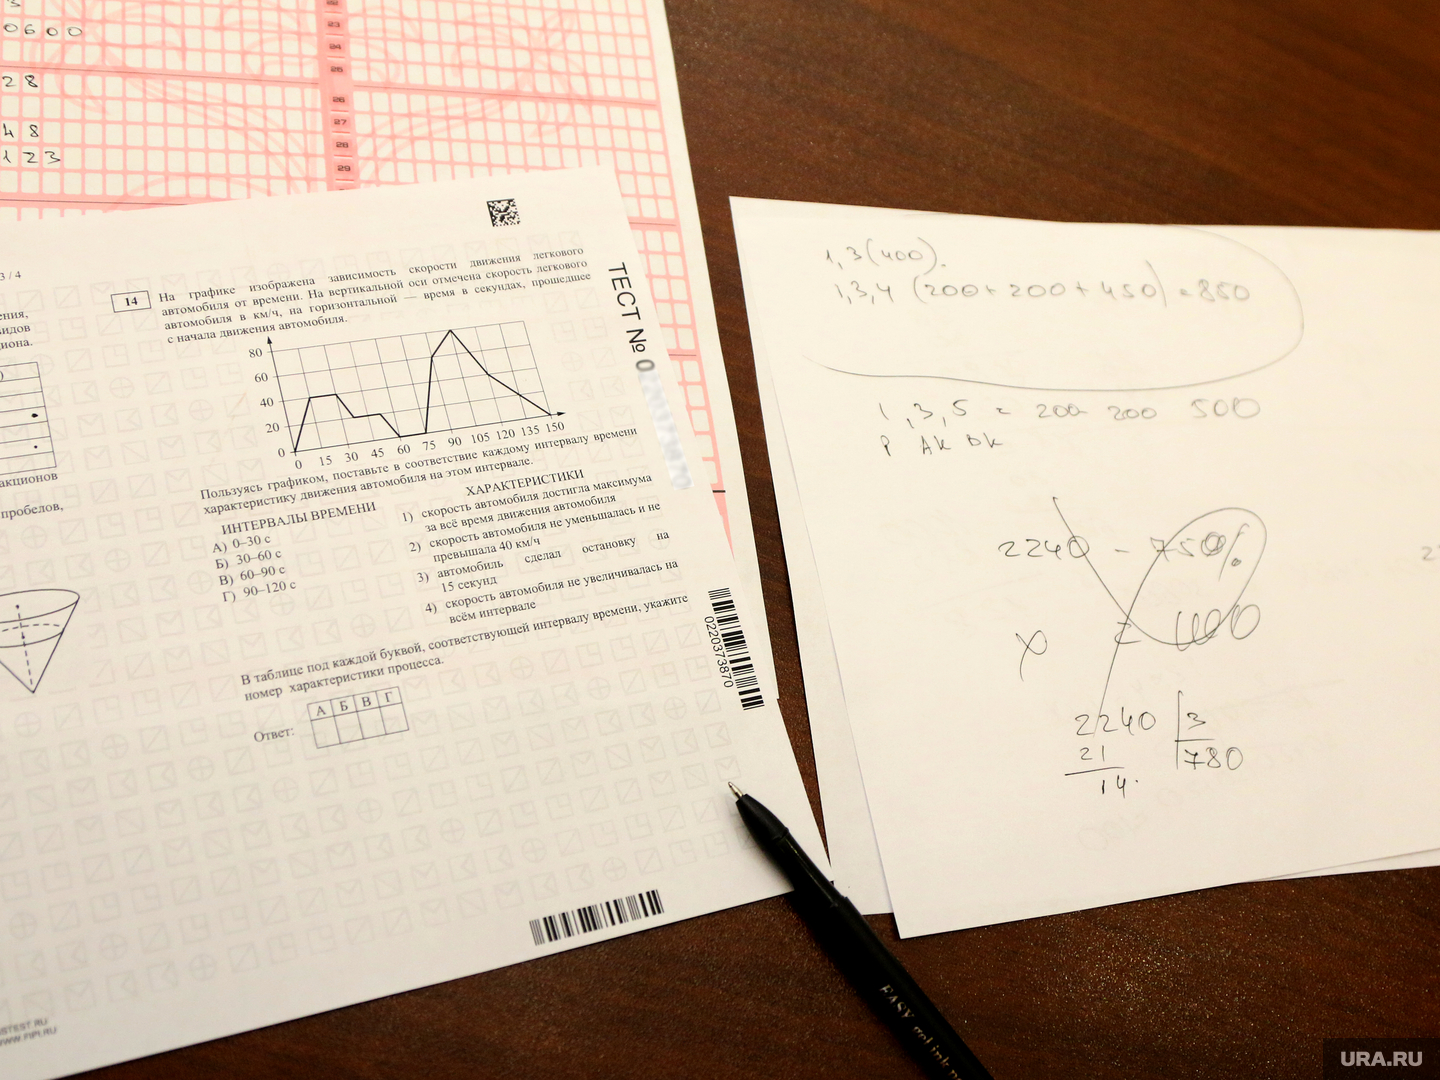 3
0600
28
48
123
22
23
24
25
26
27
28
29
3 / 4
ения,
видов
иона.
)
акционов
пробелов,
14
На графике изображена зависимость скорости движения легкового
автомобиля от времени. На вертикальной оси отмечена скорость легкового
автомобиля в км/ч, на горизонтальной — время в секундах, прошедшее
с начала движения автомобиля.
80
60
40
20
0
0 15 30 45 60 75 90 105 120 135 150
Пользуясь графиком, поставьте в соответствие каждому интервалу времени
характеристику движения автомобиля на этом интервале.
ИНТЕРВАЛЫ ВРЕМЕНИ
А) 0–30 с
Б) 30–60 с
В) 60–90 с
Г) 90–120 с
ХАРАКТЕРИСТИКИ
1) скорость автомобиля достигла максимума
за всё время движения автомобиля
2) скорость автомобиля не уменьшалась и не
превышала 40 км/ч
3) автомобиль сделал остановку на
15 секунд
4) скорость автомобиля не увеличивалась на
всём интервале
В таблице под каждой буквой, соответствующей интервалу времени, укажите
номер характеристики процесса.
А Б В Г
Ответ:
ТЕСТ № 0
0220373870
WWW.FIPI.RU
1,3(400).
1,3,4 (200+200+450) = 850
1,3,5 = 200 200 500
Р АК ВК
2240 - 750%
X = 100
2240 3
21 780
14.
EASY gel ink
URA.RU